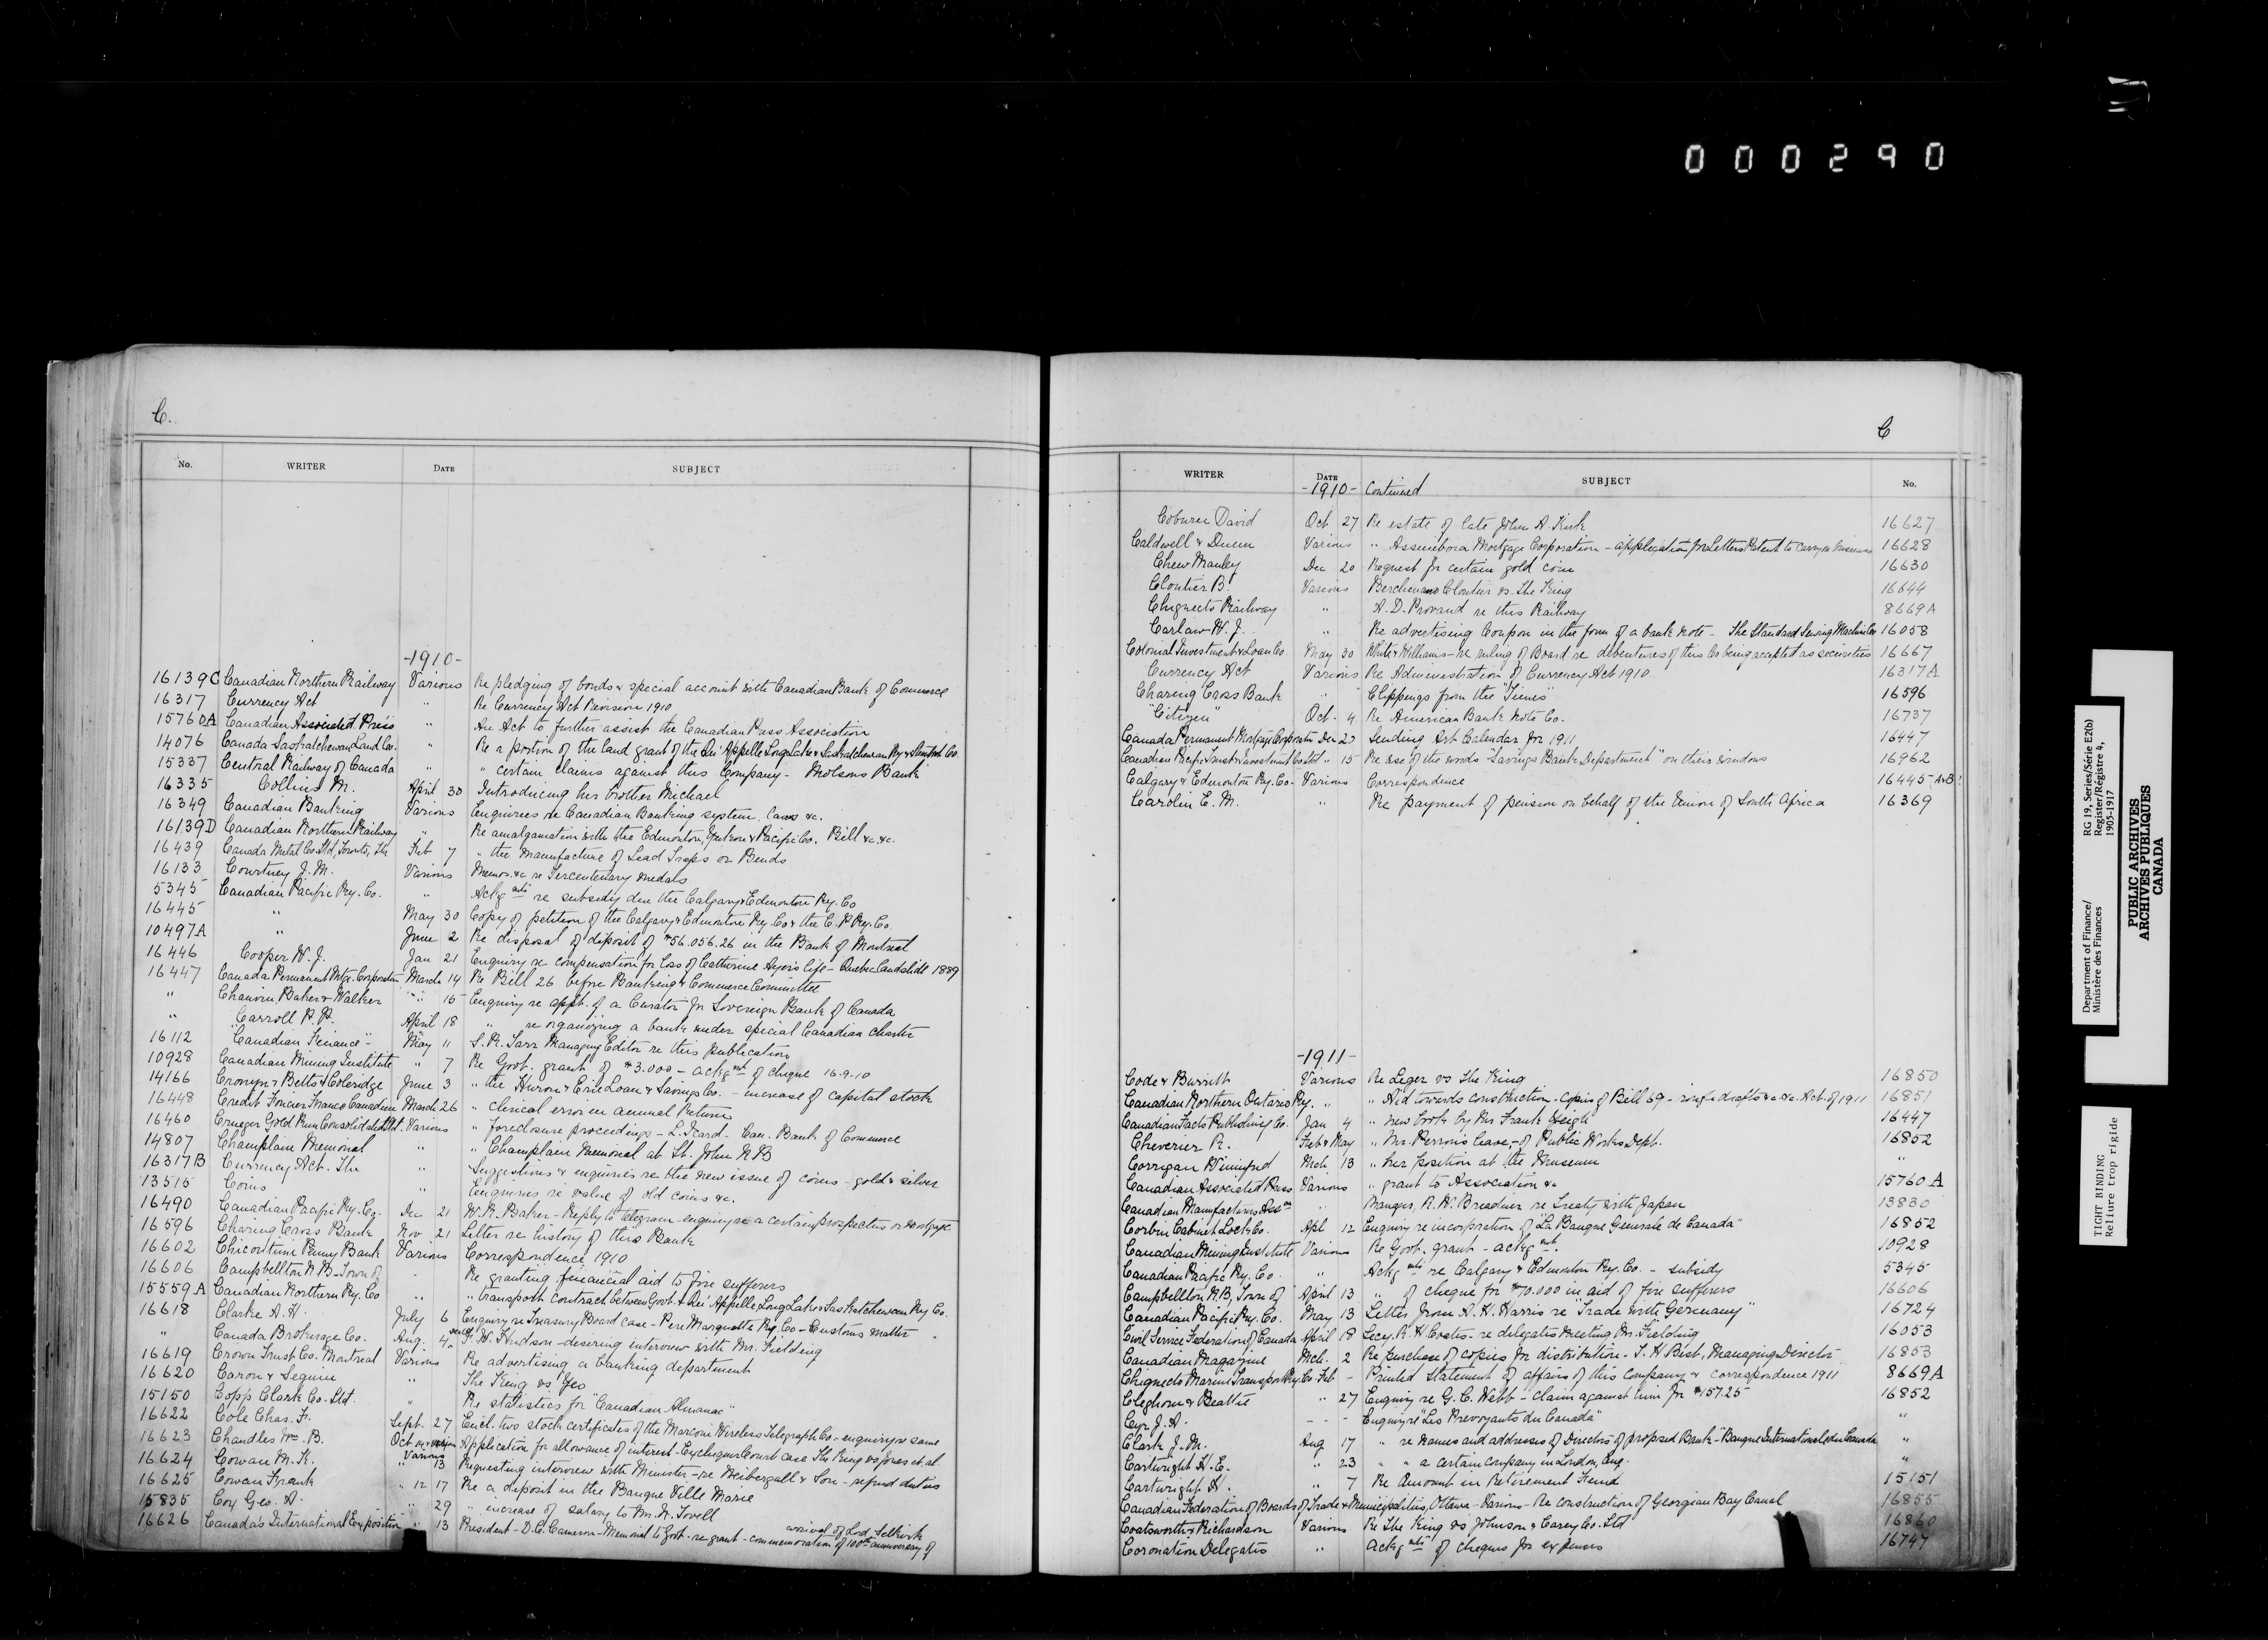 000290
C.
No. WRITER DATE SUBJECT
-1910-
16139C Canadian Northern Railway Various Re pledging of bonds & special account with Canadian Bank of Commerce
16317 Currency Act " Re Currency Act Revision 1910
15760A Canadian Associated Press " An Act to further assist the Canadian Press Association
14076 Canada Saskatchewan Land Co. " Re a portion of the land grant of the Qu'Appelle Long Lake & Saskatchewan Ry & Stmbt. Co.
15337 Central Railway of Canada " " certain claims against this Company - Molsons Bank
16335 Collins M. April 30 Introducing her brother Michael
16349 Canadian Banking Various Enquiries re Canadian Banking system, laws &c.
16139D Canadian Northern Railway " Re amalgamation with the Edmonton, Yukon & Pacific Co. Bill &c. &c.
16439 Canada Metal Co. Ltd, Toronto, The Feb 7 " the manufacture of Lead Traps or Bends
16133 Courtney J. M. Various Memos. &c re Tercentenary medals
5345 Canadian Pacific Ry. Co. " Ackg mts re subsidy due the Calgary & Edmonton Ry. Co
16445 " May 30 Copy of petition of the Calgary & Edmonton Ry Co & the C. P. Ry. Co.
10497A " June 2 Re disposal of deposit of $56.056.26 in the Bank of Montreal
16446 Cooper W. J. Jan 21 Enquiry re compensation for loss of Catherine Ayer's life - Quebec Landslide 1889
16447 Canada Permanent Mtge. Corporation March 14 Re Bill 26 before Banking & Commerce Committee
" Chauvin, Baker & Walker " 15 Enquiry re appt. of a Curator for Sovereign Bank of Canada
" Carroll P. P. April 18 " re organizing a bank under special Canadian charter
16112 "Canadian Finance" - May 11 S. R. Tarr Managing Editor re this publication
10928 Canadian Mining Institute " 7 Re Govt. grant of $3.000 - ackg mt of cheque 16-9-10
14166 Cronyn & Betts & Coleridge June 3 " the Huron & Erie Loan & Savings Co. - increase of capital stock
16448 Credit Foncier Franco Canadien March 26 " clerical error in annual Return
16460 Crueger Gold Run Consolidated Ltd. Various " foreclosure proceedings - L. Icard - Can. Bank of Commerce
14807 Champlain Memorial " " Champlain Memorial at St. John N B
16317B Currency Act. The " Suggestions & enquiries re the new issue of coins - gold & silver
13515 Coins " Enquiries re value of old coins &c.
16490 Canadian Pacific Ry. Co. Dec 21 W. R. Baker - Reply to telegram enquiry re a certain prospectus or mortgage
16596 Charing Cross Bank Nov 21 Letter re history of this Bank
16602 Chicoutimi Penny Bank Various Correspondence 1910
16606 Campbellton N. B. Town of " Re granting financial aid to fire sufferers
15559A Canadian Northern Ry. Co " " transport contract between Govt. & Qu'Appelle Long Lake & Saskatchewan Ry Co.
16618 Clarke A. H. July 6 Enquiry re Treasury Board case - Pere Marquette Ry Co - Customs matter
" Canada Brokerage Co. Aug. 4 F. W. Hudson - desiring interview with Mr. Fielding
16619 Crown Trust Co. Montreal Various Re advertising a banking department
16620 Caron & Sequin " The King vs Yeo
15150 Copp Clark Co. Ltd. " Re statistics for "Canadian Almanac"
16622 Cole Chas. Fr. Sept. 27 Encl. two stock certificates of the Marconi Wireless Telegraph Co. - enquiry re same
16623 Chandler Wm. B. Oct Various Application for allowance of interest - Exchequer Court case The King vs Jones et. al
16624 Cowan M. K. " 13 Requesting interview with Minister - re Neibergall & Son - refund duties
16625 Cowan Frank " 12 17 Re a deposit in the Banque Ville Marie
15835 Cox Geo. A. " 29 " increase of salary to Mr. N. Tovell
16626 Canada's International Exposition " 13 President - D. C. Cameron - Memorial to Govt. re grant - commemoration of 100th anniversary of
arrival of Lord Selkirk
C
WRITER DATE SUBJECT No.
-1910- Continued
Coburn David Oct 27 Re estate of late John A. Kirk 16627
Caldwell & Dunn Various " Assiniboia Mortgage Corporation - application for Letters Patent to carry on business 16628
Chew Manley Dec 20 Request for certain gold coin 16630
Cloutier B. Various Berchmans Cloutier vs. The King 16644
Chignecto Railway " A. D. Provand re this Railway 8669A
Carlaw W. J. " Re advertising Coupon in the form of a bank note - The Standard Sewing Machine Co 16058
Colonial Investment & Loan Co. May 30 White & Williams - re ruling of Board re debentures of this Co being accepted as securities 16667
Currency Act Various Re Administration of Currency Act 1910 16317A
Charing Cross Bank " Clippings from the "Times" 16596
"Citizen" Oct. 4 Re American Bank Note Co. 16737
Canada Permanent Mortgage Corporation Dec 27 Sending Art Calendar for 1911 16447
Canadian Pacific Trust & Investment Co. Ltd " 15 Re use of the words "Savings Bank Department" on their windows 16962
Calgary & Edmonton Ry. Co. - Various Correspondence 16445 A&B
Carolin E. M. " Re payment of pension on behalf of the Union of South Africa 16369
-1911-
Code & Burritt Various Re Leger vs The King 16850
Canadian Northern Ontario Ry. " " Aid towards construction - Copies of Bill 69 - rough drafts &c &c. Act of 1911 16851
Canadian Facts Publishing Co. Jan 4 " new book by Mr Frank Yeigh 16447
Cheverier R. Feb & May " Mr. Perron's leave, - of Public Works Dept. 16852
Corrigan Winifred Mch 13 " her position at the Museum "
Canadian Associated Press Various " grant to Association &c 15760 A
Canadian Manufacturers Assn " Manager, R. W. Breadner re Treaty with Japan 13830
Corbin Cabinet Lock Co. Apl 12 Enquiry re incorporation of "La Banque Generale de Canada" 16852
Canadian Mining Institute Various Re Govt. grant - ackg mt. 10928
Canadian Pacific Ry. Co. " Ackg mts re Calgary & Edmonton Ry. Co. - subsidy 5345
Campbellton N. B, Town of April 13 " of cheque for $70.000 in aid of fire sufferers 16606
Canadian Pacific Ry. Co. May 13 Letter from A. H. Harris re "Trade with Germany" 16724
Civil Service Federation of Canada April 18 Secy. R. H Coats - re delegates meeting Mr. Fielding 16053
Canadian Magazine Mch. 2 Re purchase of copies for distribution - T. H Best, Managing Director 16853
Chignecto Marine Transport Ry. Co Feb - Printed statement of affairs of this Company & correspondence 1911 8669A
Cleghorn & Beattie " 27 Enquiry re G. C. Webb - claim against him for $157.25 16852
Cyr J. A. - - - Enquiry re "Les Prevoyants du Canada" "
Clark J. M. Aug 17 " re names and addresses of Directors of proposed Bank - "Banque Internationale du Canada "
Cartwright H. E. " 23 " " a certain company in London, Eng. "
Cartwright H. " 7 Re Amount in Retirement Fund 15151
Canadian Federation of Boards of Trade & Municipalities, Ottawa - Various - Re construction of Georgian Bay Canal 16855
Coatsworth & Richardson Various Re The King vs Johnson & Carey Co. Ltd 16860
Coronation Delegates " Ackg mts of cheques for expenses 16747
Department of Finance/
Ministère des Finances
RG 19, Series/Série E2(b)
Register/Régistre 4,
1905-1917
PUBLIC ARCHIVES
ARCHIVES PUBLIQUES
CANADA
TIGHT BINDING
Reliure trop rigide